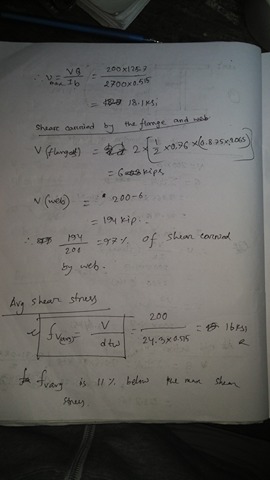 ∴ ν max = VQ / Ib = 200×125.7 / 2700×0.515
= 18.1 ksi
Shear carried by the flange and web
V (flange) = 2 × (1/2 × 0.76 × (0.875×9.065)
= 6 kips
V (web) = 200-6
= 194 kip.
∴ 194/200 = 97% of shear carried
by web.
Avg shear stress
fv avg = V / d tw = 200 / 24.3×0.515 = 16 ksi
fv avg is 11% below the max shear
stress.